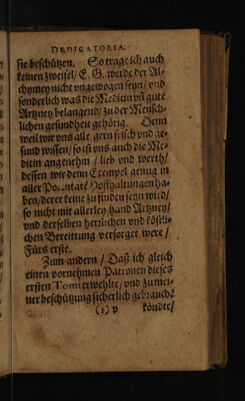 DEDICATORIA.
sie beschützen. So trage ich auch
keinen zweifel / E. G. werde der Al-
chymey nicht vngewogen seyn / vnd
sonderlich was die Medicin vñ gute
Artzney belangend / zu der Mensch-
lichen gesundheit gehörig. Denn
weil wir vns alle gern frisch vnd ge-
sund wissen / so ist vns auch die Me-
dicin angenehm / lieb vnd werth /
dessen wir denn Exempel genug in
aller Potentaté Hoffhaltungen ha-
ben / derer keine zu finden seyn wird /
so nicht mit allerley hand Artzney /
vnd derselben herrlichen vnd köstli-
chen Bereittung versorget were /
Fürs erste.
Zum andern / Daß ich gleich
einen vornehmen Patronen dieses
ersten Tomi erwehlte / vnd zu mei-
ner beschützung sicherlich gebrauchẽ
(1) v köndte /